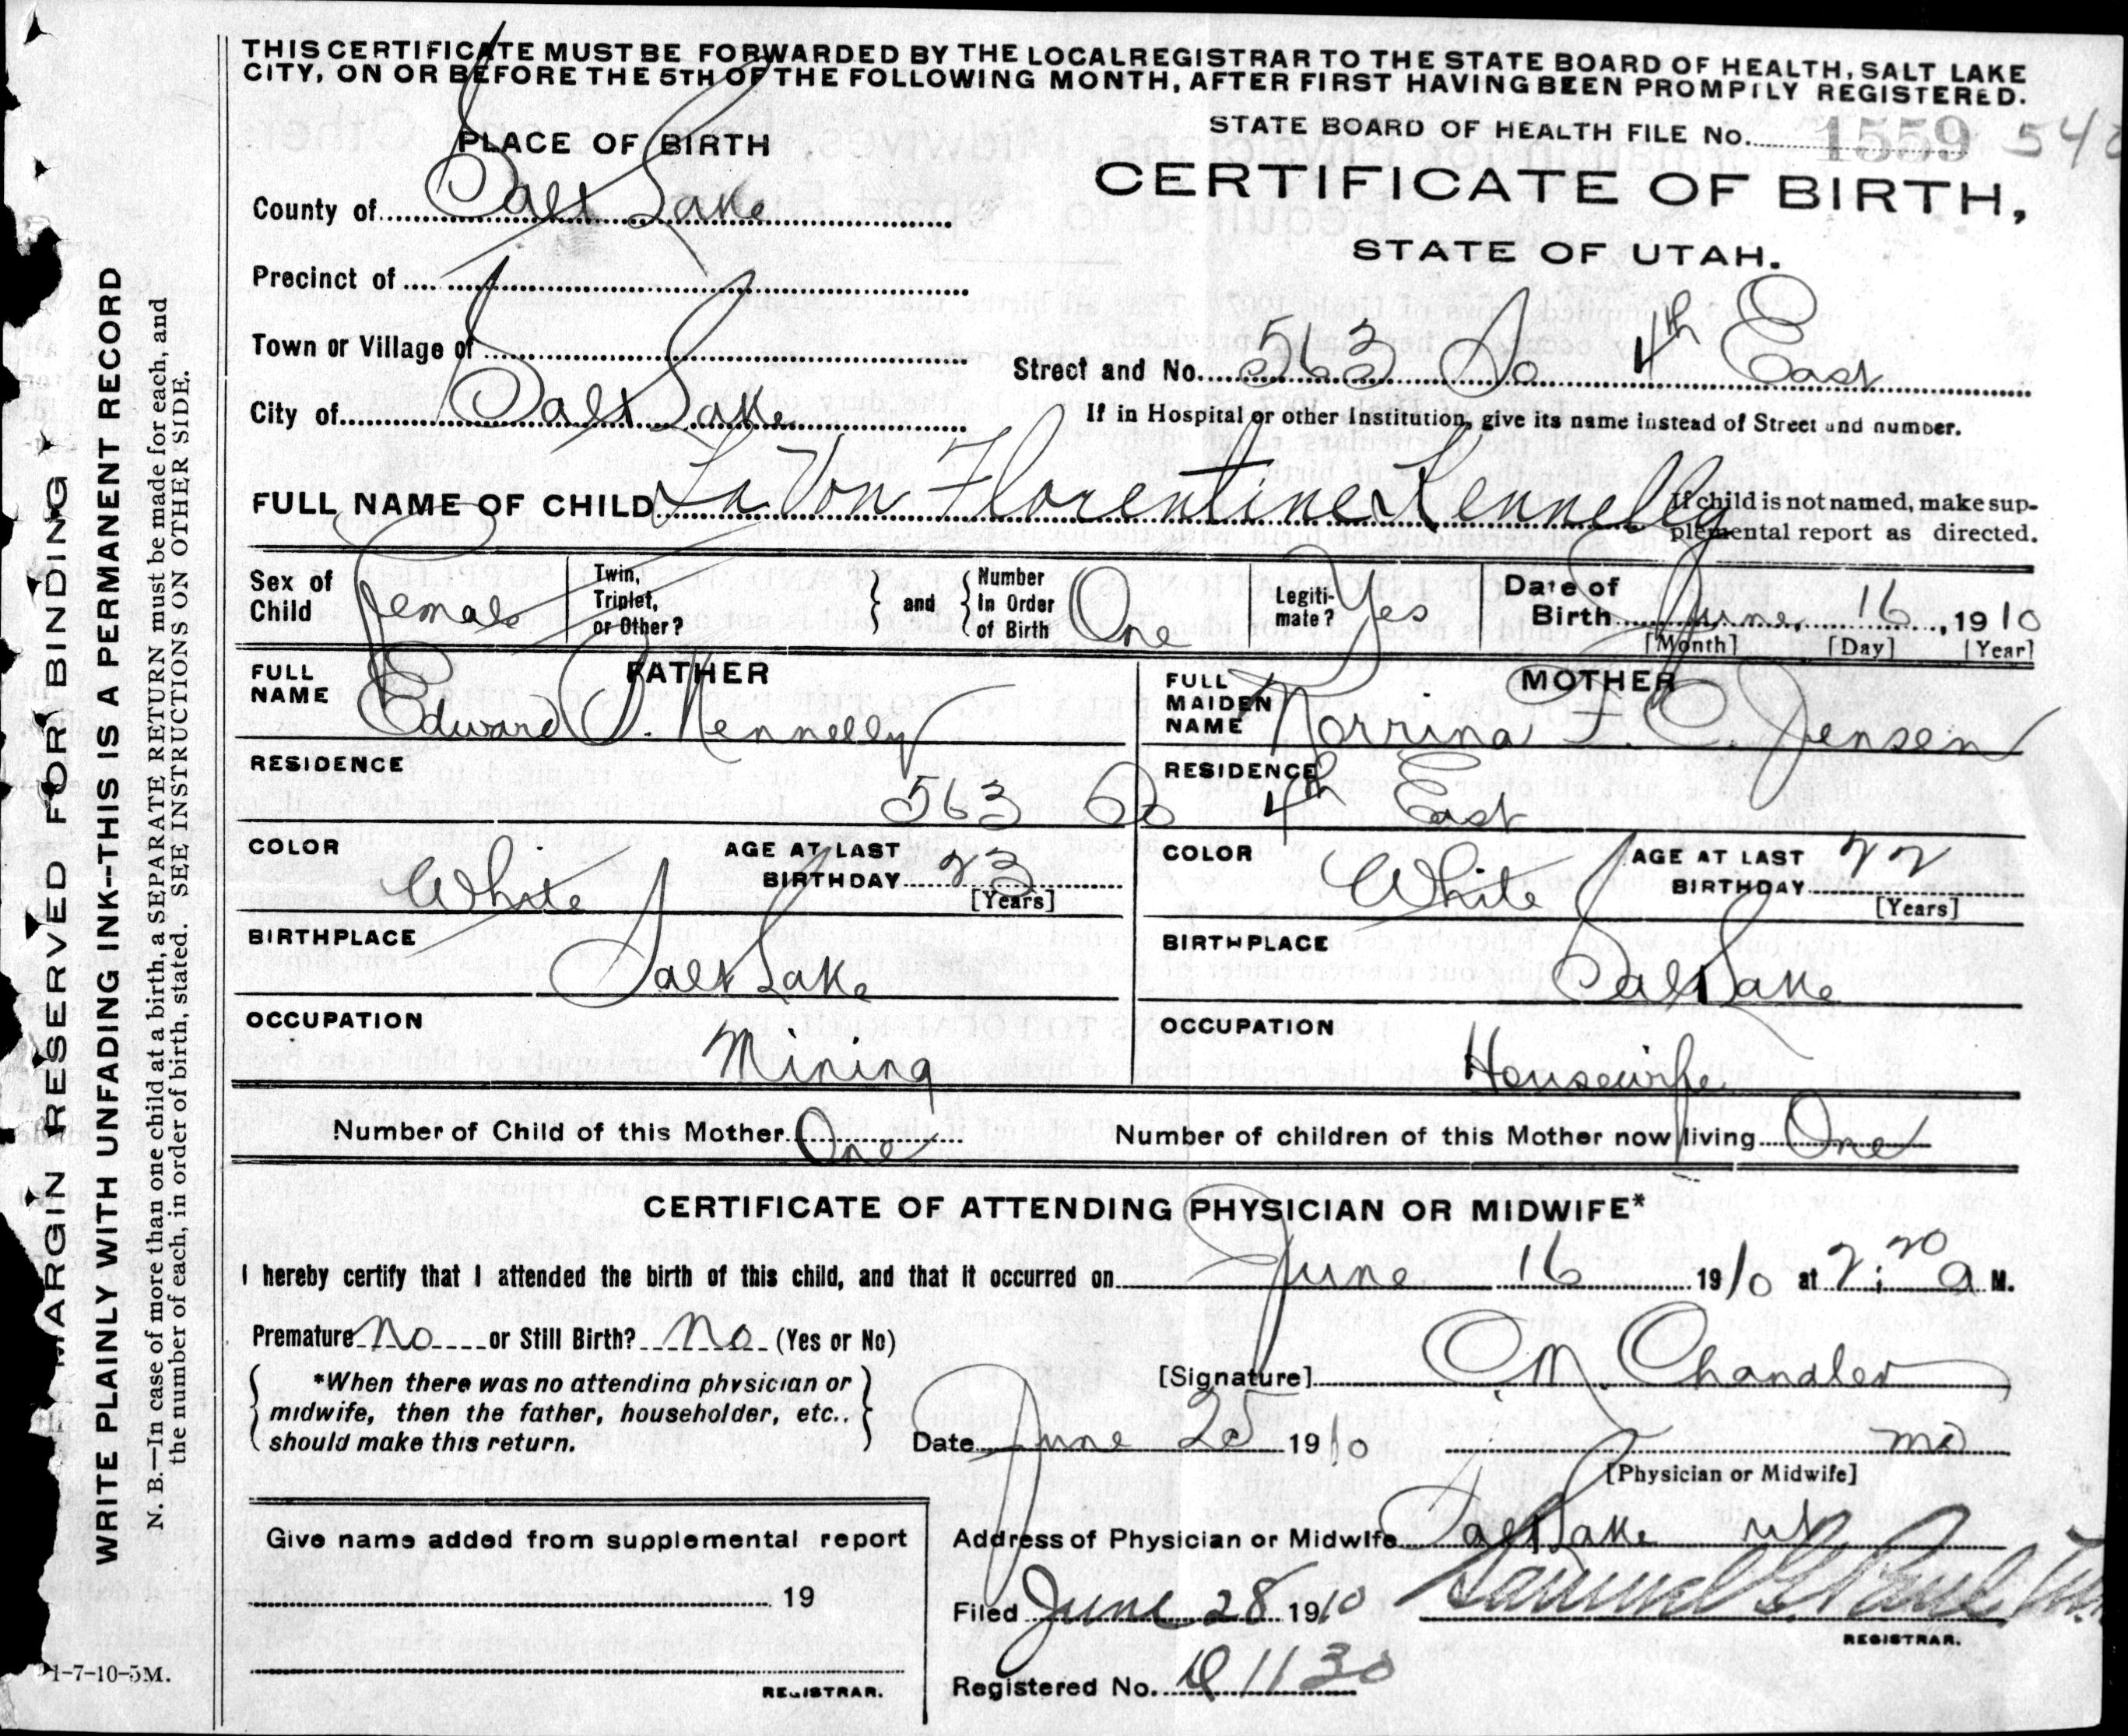 THIS CERTIFICATE MUST BE FORWARDED BY THE LOCAL REGISTRAR TO THE STATE BOARD OF HEALTH, SALT LAKE
CITY, ON OR BEFORE THE 5TH OF THE FOLLOWING MONTH, AFTER FIRST HAVING BEEN PROMPTLY REGISTERED.
STATE BOARD OF HEALTH FILE No. 1559
CERTIFICATE OF BIRTH,
STATE OF UTAH.
PLACE OF BIRTH
County of Salt Lake
Precinct of
Town or Village of
City of Salt Lake
Street and No. 563 So 4th East
If in Hospital or other Institution, give its name instead of Street and number.
FULL NAME OF CHILD La Von Florentine Kennelly
If child is not named, make sup-
plemental report as directed.
Sex of Child Female
Twin, Triplet, or Other?
and
Number In Order of Birth One
Legiti-mate? Yes
Date of Birth June 16, 1910
[Month] [Day] [Year]
FATHER
FULL NAME Edward J. Kennelly
RESIDENCE 563 So
COLOR White
AGE AT LAST BIRTHDAY 23
[Years]
BIRTHPLACE Salt Lake
OCCUPATION Mining
MOTHER
FULL MAIDEN NAME Norrina F. C. Jensen
RESIDENCE 4th East
COLOR White
AGE AT LAST BIRTHDAY 22
[Years]
BIRTHPLACE Salt Lake
OCCUPATION Housewife
Number of Child of this Mother One
Number of children of this Mother now living One
CERTIFICATE OF ATTENDING PHYSICIAN OR MIDWIFE*
I hereby certify that I attended the birth of this child, and that it occurred on June 16 1910 at 2:20 a M.
Premature No or Still Birth? No (Yes or No)
*When there was no attending physician or
midwife, then the father, householder, etc..
should make this return.
[Signature] C. M. Chandler
Date June 25 1910
MD
[Physician or Midwife]
Address of Physician or Midwife Salt Lake ut
Give name added from supplemental report
19
REGISTRAR.
Filed June 28 1910 Samuel G. Paul
REGISTRAR.
Registered No. 1130
MARGIN RESERVED FOR BINDING
WRITE PLAINLY WITH UNFADING INK--THIS IS A PERMANENT RECORD
N. B.—In case of more than one child at a birth, a SEPARATE RETURN must be made for each, and
the number of each, in order of birth, stated. SEE INSTRUCTIONS ON OTHER SIDE.
1-7-10-5M.